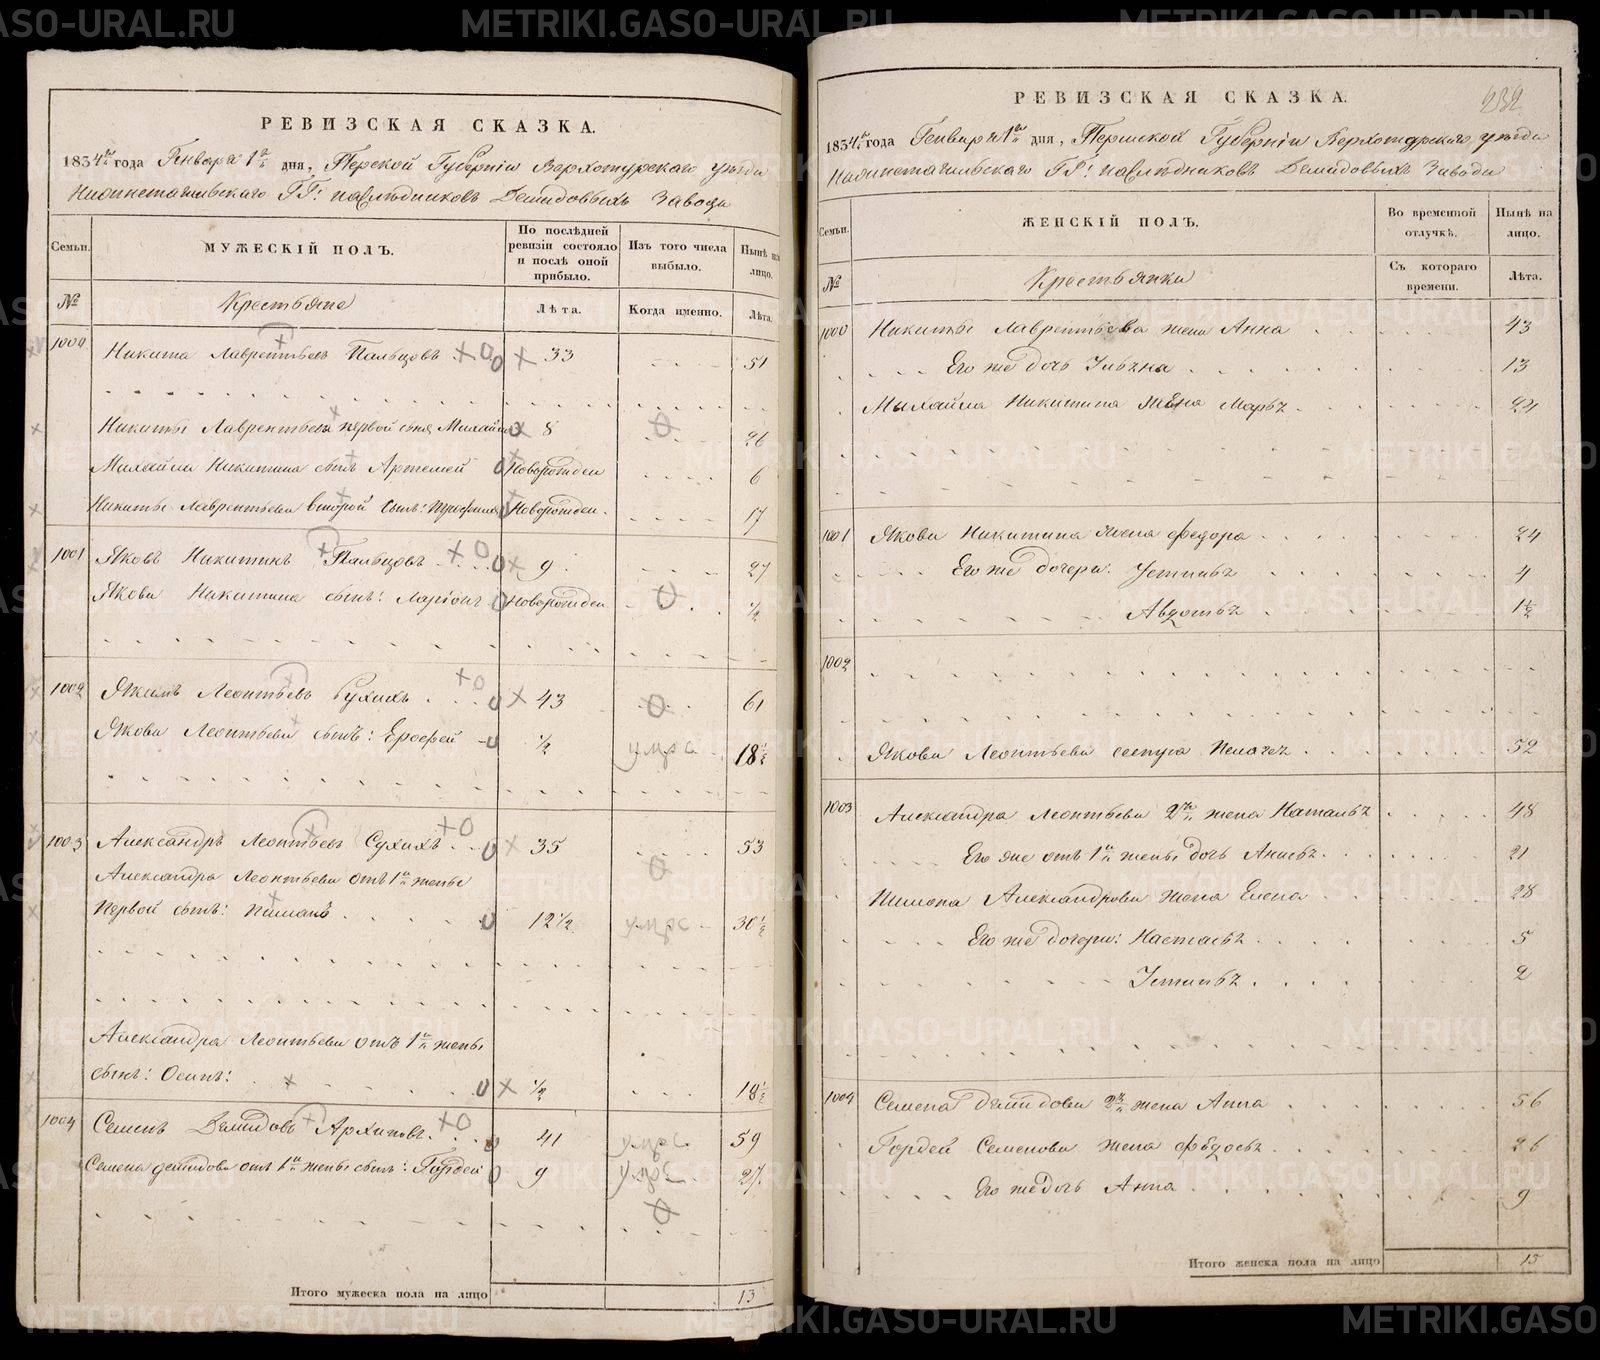 РЕВИЗСКАЯ СКАЗКА.
1834 года Генваря 1 дня, Пермской Губернiи Верхотурскаго уезда
Нижнетагильскаго ГГ: наследниковъ Демидовыхъ завода
Семьи.
МУЖЕСКIЙ ПОЛЪ.
По последней ревизiи состояло и после оной прибыло.
Изъ того числа выбыло.
Ныне на лицо.
№
Крестьяне
Лета.
Когда именно.
Лета.
1000
Никита Лаврентьевъ Пальцовъ 33 51
Никиты Лаврентьева первой сынъ Михайла 8 26
Михайла Никитина сынъ Артемей Новорожден 6
Никиты Лаврентьева второй сынъ: Новорожден. 17
1001 Яковъ Никитинъ Пальцовъ 9 27
Якова Никитина сынъ: Ларiонъ Новорожден ½
1002 Леонтьевъ Сухихъ 43 61
Якова Леонтьева сынъ: Ерофей ½ умре 18½
1003 Александръ Леонтьевъ Сухихъ 35 53
Александра Леонтьева отъ 1й жены
Первой сынъ: Пиманъ 12½ умре 30½
Александра Леонтьева отъ 1й жены
сынъ: Осипъ: ½ 18½
1004 Семенъ Демидовъ Архиповъ 41 умре 59
Семена Демидова отъ 1й жены сынъ: Гордей 9 умре 27.
Итого мужеска пола на лицо 13
РЕВИЗСКАЯ СКАЗКА.
232
1834 года Генваря 1 дня, Пермской Губернiи Верхотурскаго уезда
Нижнетагильскаго ГГ: наследниковъ Демидовыхъ завода
Семьи.
ЖЕНСКIЙ ПОЛЪ.
Во временной отлучкѣ.
Нынѣ на лицо.
№
Крестьянки
Съ котораго времени.
Лѣта.
1000 Никиты Лаврентьева жена Анна 43
Его же дочь Ульяна 13
Михайла Никитина жена Марья 24
1001 Якова Никитина жена Федора 24
Его же дочери: Устинья 4
Авдотья 1½
1002
Якова Леонтьева сестра Пелагея 52
1003 Александра Леонтьева 2я жена Наталья 48
Его же отъ 1й жены дочь Анисья 21
Пимана Александрова жена Елена 28
Его же дочери: Настасья 5
Устинья 2
1004 Семена Демидова 2я жена Анна 56
Гордея Семенова жена Федосья 26
Его же дочь Анна 9
Итого женска пола на лицо 15
METRIKI.GASO-URAL.RU